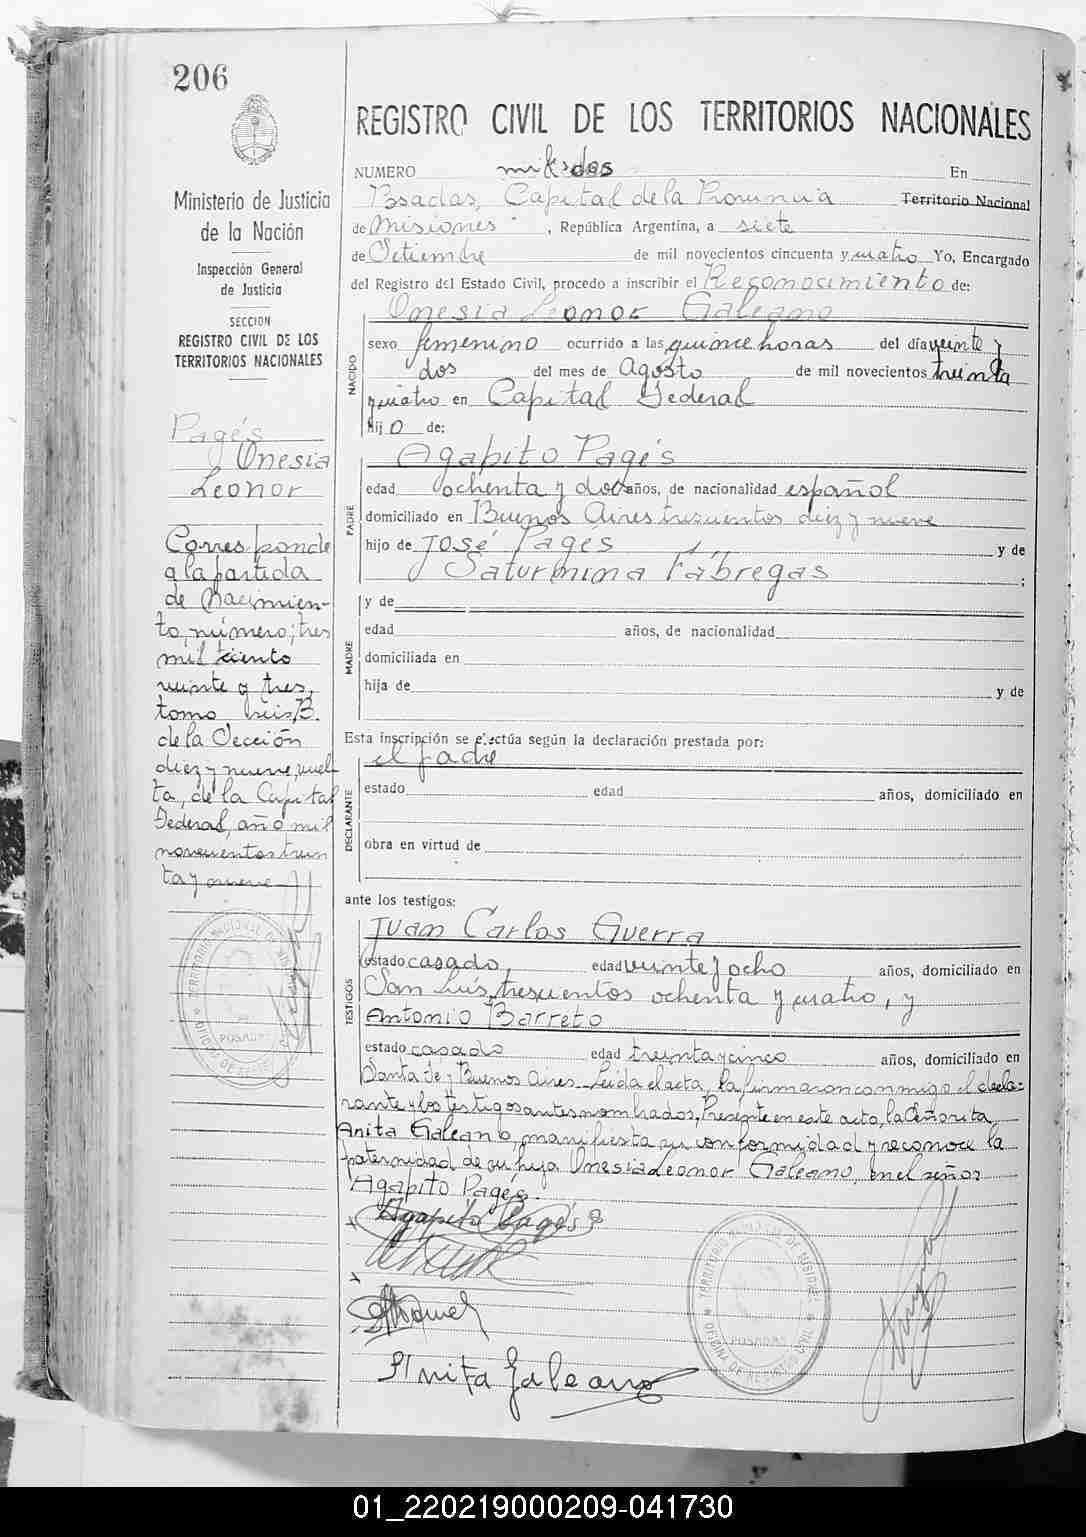 206
Ministerio de Justicia
de la Nación
Inspección General
de Justicia
SECCION
REGISTRO CIVIL DE LOS
TERRITORIOS NACIONALES
Pagés
Onesia
Leonor
Corresponde
a la partida
de Nacimien-
to, número; tres
mil ciento
veinte y tres,
tomo seis B.
de la Sección
diez y nueve, vuel-
ta, de la Capital
Federal, año mil
novecientos trein
ta y nueve
REGISTRO CIVIL DE LOS TERRITORIOS NACIONALES
NUMERO mil dos En
Posadas, Capital de la Provincia Territorio Nacional
de Misiones, República Argentina, a siete
de Setiembre de mil novecientos cincuenta y cuatro Yo, Encargado
del Registro del Estado Civil, procedo a inscribir el Reconocimiento de:
Onesia Leonor Galeano
NACIDO
sexo femenino ocurrido a las quince horas del día veinte y
dos del mes de Agosto de mil novecientos treinta
y cuatro en Capital Federal
hijo de:
Agapito Pagés
PADRE
edad ochenta y dos años, de nacionalidad español
domiciliado en Buenos Aires trescientos diez y nueve
hijo de José Pagés y de
Saturnina Fábregas ;
MADRE
y de
edad años, de nacionalidad
domiciliada en
hija de y de
Esta inscripción se efectúa según la declaración prestada por:
el padre
DECLARANTE
estado edad años, domiciliado en
obra en virtud de
ante los testigos:
Juan Carlos Guerra
TESTIGOS
estado casado, edad veinte y ocho años, domiciliado en
San Luis, trescientos ochenta y cuatro, y
Antonio Barreto
estado casado edad treinta y cinco años, domiciliado en
Santa Fe y Buenos Aires. Leida el acta, la firmaron conmigo el decla-
rante y los testigos antes nombrados, Presente en este acto, la Señorita
Anita Galeano, manifiesta su conformidad y reconoce la
paternidad de su hija Onesia Leonor Galeano, en el señor
Agapito Pagés.
Agapito Pagés
Anita Galeano
POSADAS
POSADAS
01_220219000209-041730